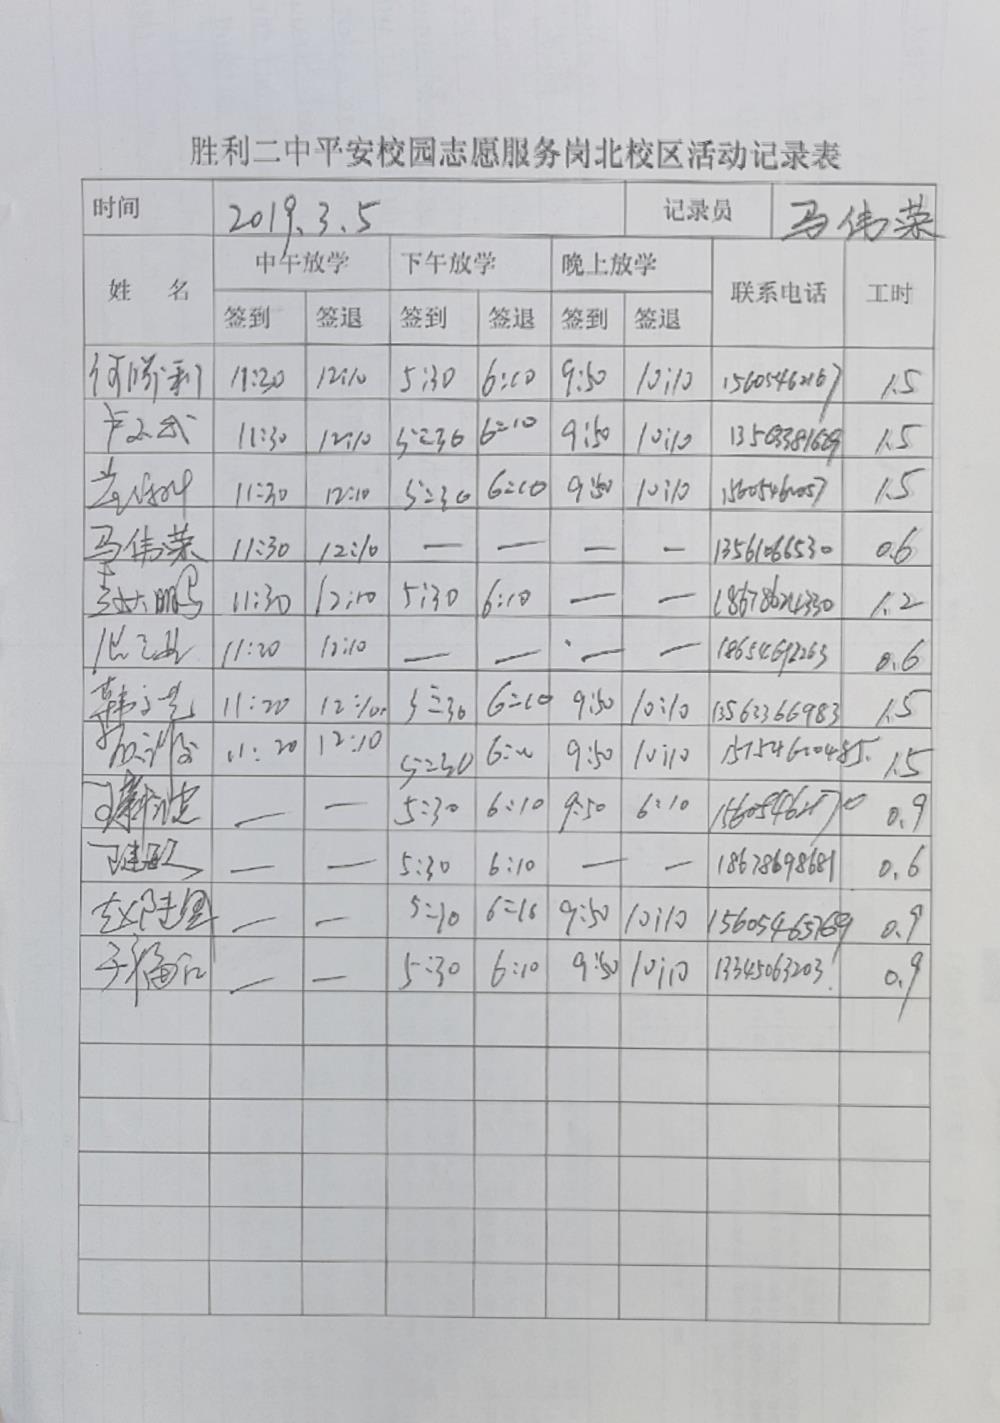 胜利二中平安校园志愿服务岗北校区活动记录表
时间 2019.3.5 记录员 马伟荣
姓 名 中午放学 下午放学 晚上放学 联系电话 工时
签到 签退 签到 签退 签到 签退
何胜利 11:30 12:10 5:30 6:10 9:50 10:10 15605462167 1.5
11:30 12:10 5:30 6:10 9:50 10:10 1.5
11:30 12:10 5:30 6:10 9:50 10:10 1.5
马伟荣 11:30 12:10 — — — — 13561066530 0.6
11:30 12:10 5:30 6:10 — — 1.2
11:20 12:10 — — — — 0.6
韩 11:20 12:10 5:30 6:10 9:50 10:10 13563366983 1.5
11:20 12:10 5:30 9:50 10:10 1.5
— — 5:30 6:10 9:50 6:10 0.9
— — 5:30 6:10 — — 18678698681 0.6
赵 — — 6:10 9:50 10:10 15605465769 0.9
— — 5:30 6:10 9:50 10:10 13345063203 0.9